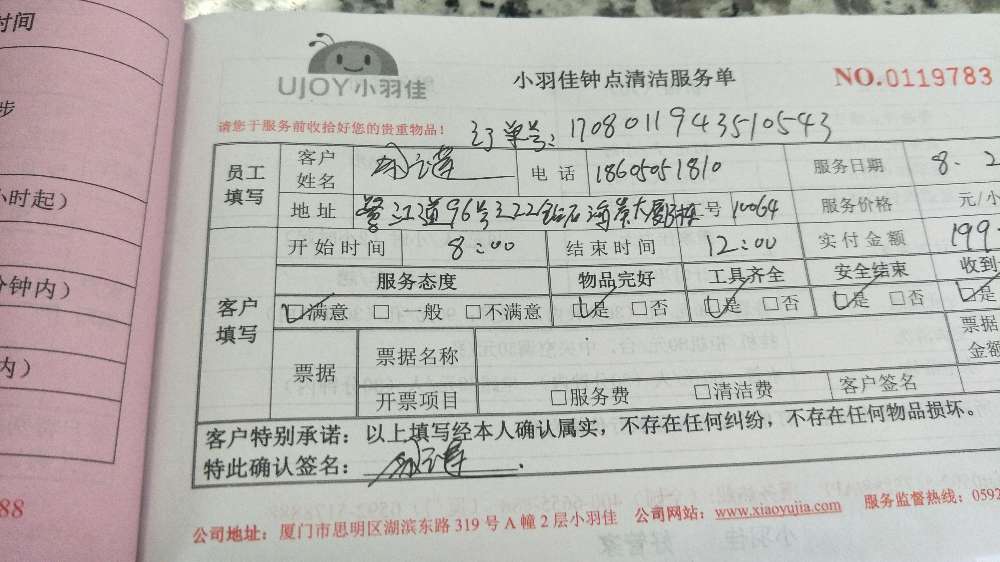 时间
步
小时起）
分钟内）
内）
88
UJOY小羽佳
小羽佳钟点清洁服务单
NO.0119783
请您于服务前收拾好您的贵重物品！
订单号：1708011943510543
员工填写 客户姓名 电话 18605051810 服务日期 8.2
地址 鹭江道96号之22钻石海岸大厦 号 10064 服务价格 元/小
开始时间 8:00 结束时间 12:00 实付金额 199
客户填写 服务态度 物品完好 工具齐全 安全结束 收到
☑满意 □一般 □不满意 ☑是 □否 ☑是 □否 ☑是 □否 ☑是
票据 票据名称 票据金额
开票项目 □服务费 □清洁费 客户签名
客户特别承诺：以上填写经本人确认属实，不存在任何纠纷，不存在任何物品损坏。
特此确认签名：
公司地址：厦门市思明区湖滨东路319号A幢2层小羽佳 公司网站：www.xiaoyujia.com 服务监督热线：0592